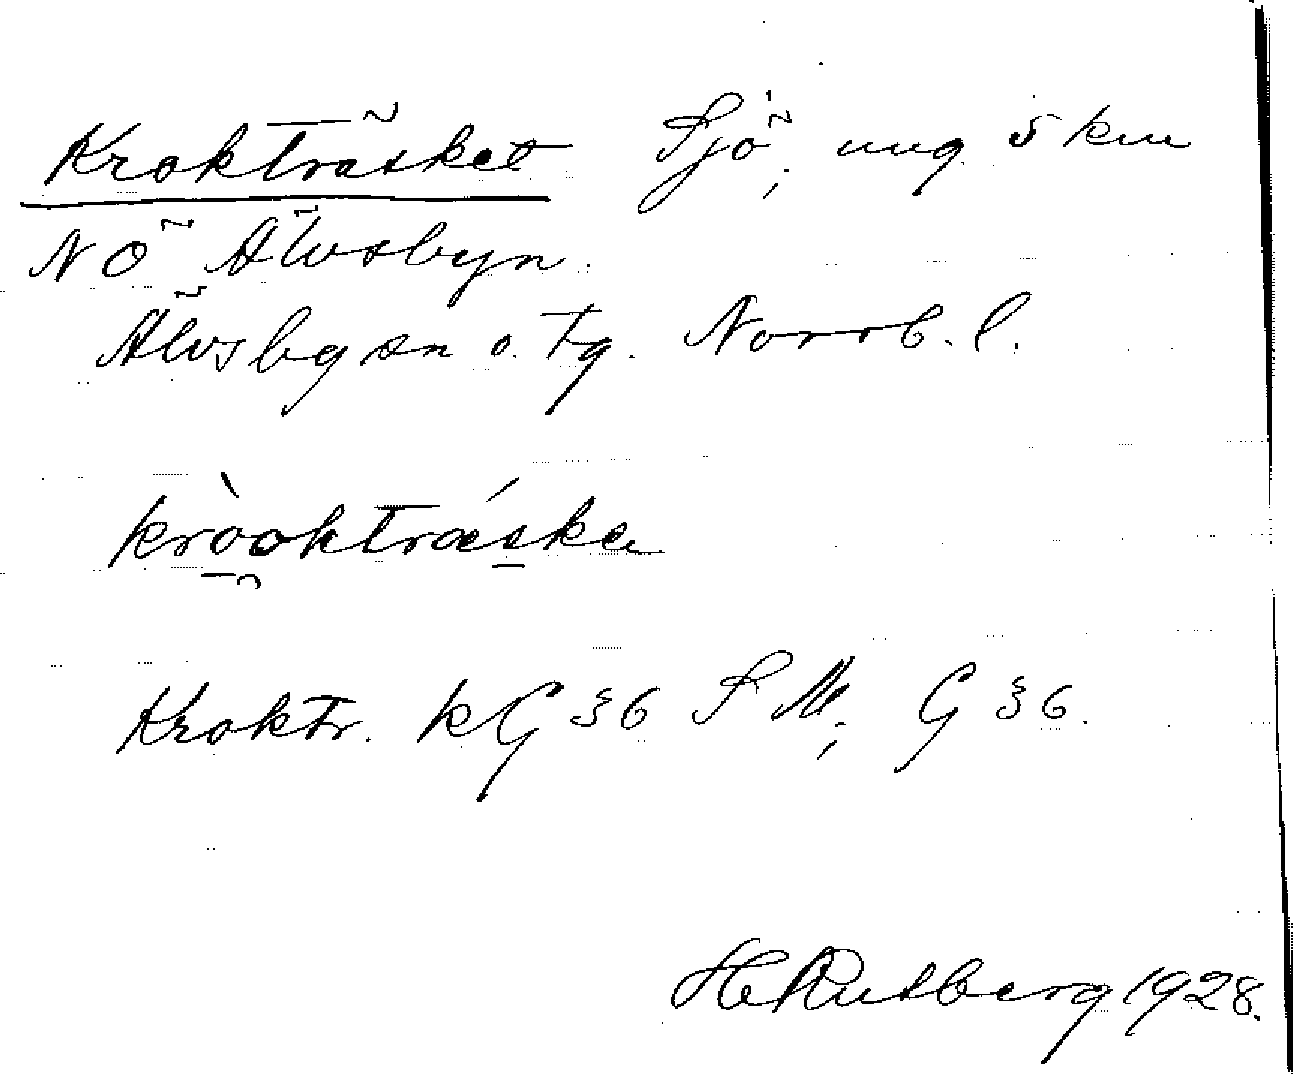 Krokträsket Sjö, ung 5 km
NÖ Älvsbyn.
Älvsby sn o. tg. Norrb. l.
kròoktrǽska
Kroktr. kG §6 SM; G §6.
H Rutberg 1928.